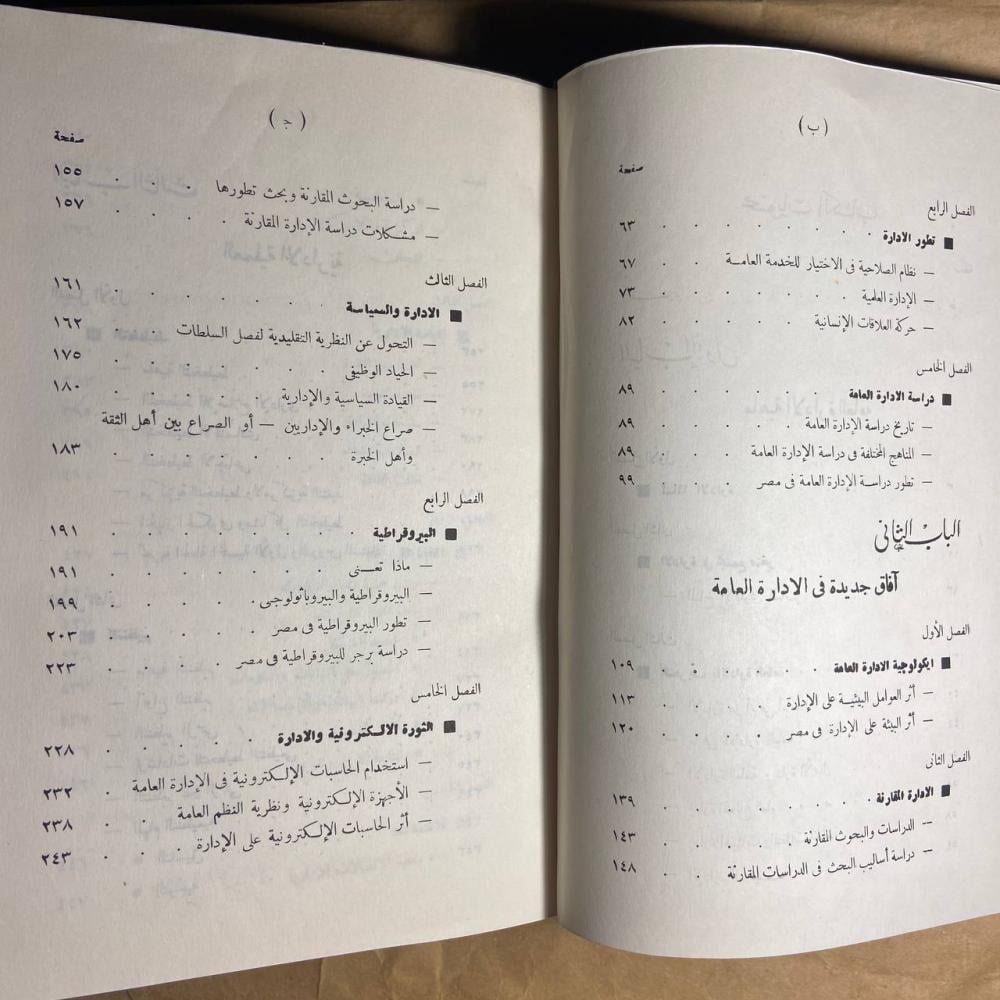 (ب)
صفحة
الفصل الرابع
■ تطور الادارة . . . . . . . ٦٣
— نظام الصلاحية فى الاختيار للخدمة العامـــة . . ٦٧
— الإدارة العلمية . . . . . . ٧٣
— حركة العلاقات الإنسانية . . . . . ٨٢
الفصل الخامس
■ دراسة الادارة العامة . . . . . ٨٩
— تاريخ دراسة الإدارة العامة . . . . . ٨٩
— المناهج المختلفة فى دراسة الإدارة العامة . . . ٨٩
— تطور دراســة الإدارة العامة فى مصر . . . ٩٩
الباب الثانى
آفاق جديدة فى الادارة العامة
الفصل الأول
■ ايكولوجية الادارة العامة . . . . ١٠٩
— أثر العوامل البيئيــة على الإدارة . . . ١١٣
— أثر البيئة على الإدارة فى مصر . . . ١٢٠
الفصل الثانى
■ الادارة المقارنة . . . . . . . ١٣٩
— الدراسات والبحوث المقارنة . . . . ١٤٣
— دراسة أساليب البحث فى الدراسات المقارنة . . ١٤٨
(ج)
صفحة
— دراسة البحوث المقارنة وبحث تطورها . . . ١٥٥
— مشكلات دراسة الإدارة المقارنة . . . . ١٥٧
الفصل الثالث
■ الادارة والسياسة . . . . . . . ١٦١
— التحول عن النظرية التقليدية لفصل السلطات . . ١٦٢
— الحياد الوظيفى . . . . . . . ١٧٥
— القيادة السياسية والإدارية . . . . . ١٨٠
— صراع الخبراء والإداريين — أو الصراع بين أهل الثقة
وأهل الخبرة . . . . . . . ١٨٣
الفصل الرابع
■ البيروقراطية . . . . . . . ١٩١
— ماذا تعــنى . . . . . . . ١٩١
— البيروقراطية والبيروباثولوجى . . . . . ١٩٩
— تطور البيروقراطية فى مصر . . . . . ٢٠٣
— دراسة برجر للبيروقراطية فى مصر . . . . ٢٢٣
الفصل الخامس
■ الثورة الالكترونية والادارة . . . . . ٢٢٨
— استخدام الحاسبات الإلكترونية فى الإدارة العامة . ٢٣٢
— الأجهزة الإلكترونية ونظرية النظم العامة . . ٢٣٨
— أثر الحاسبات الإلكترونية على الإدارة . . . . ٢٤٣